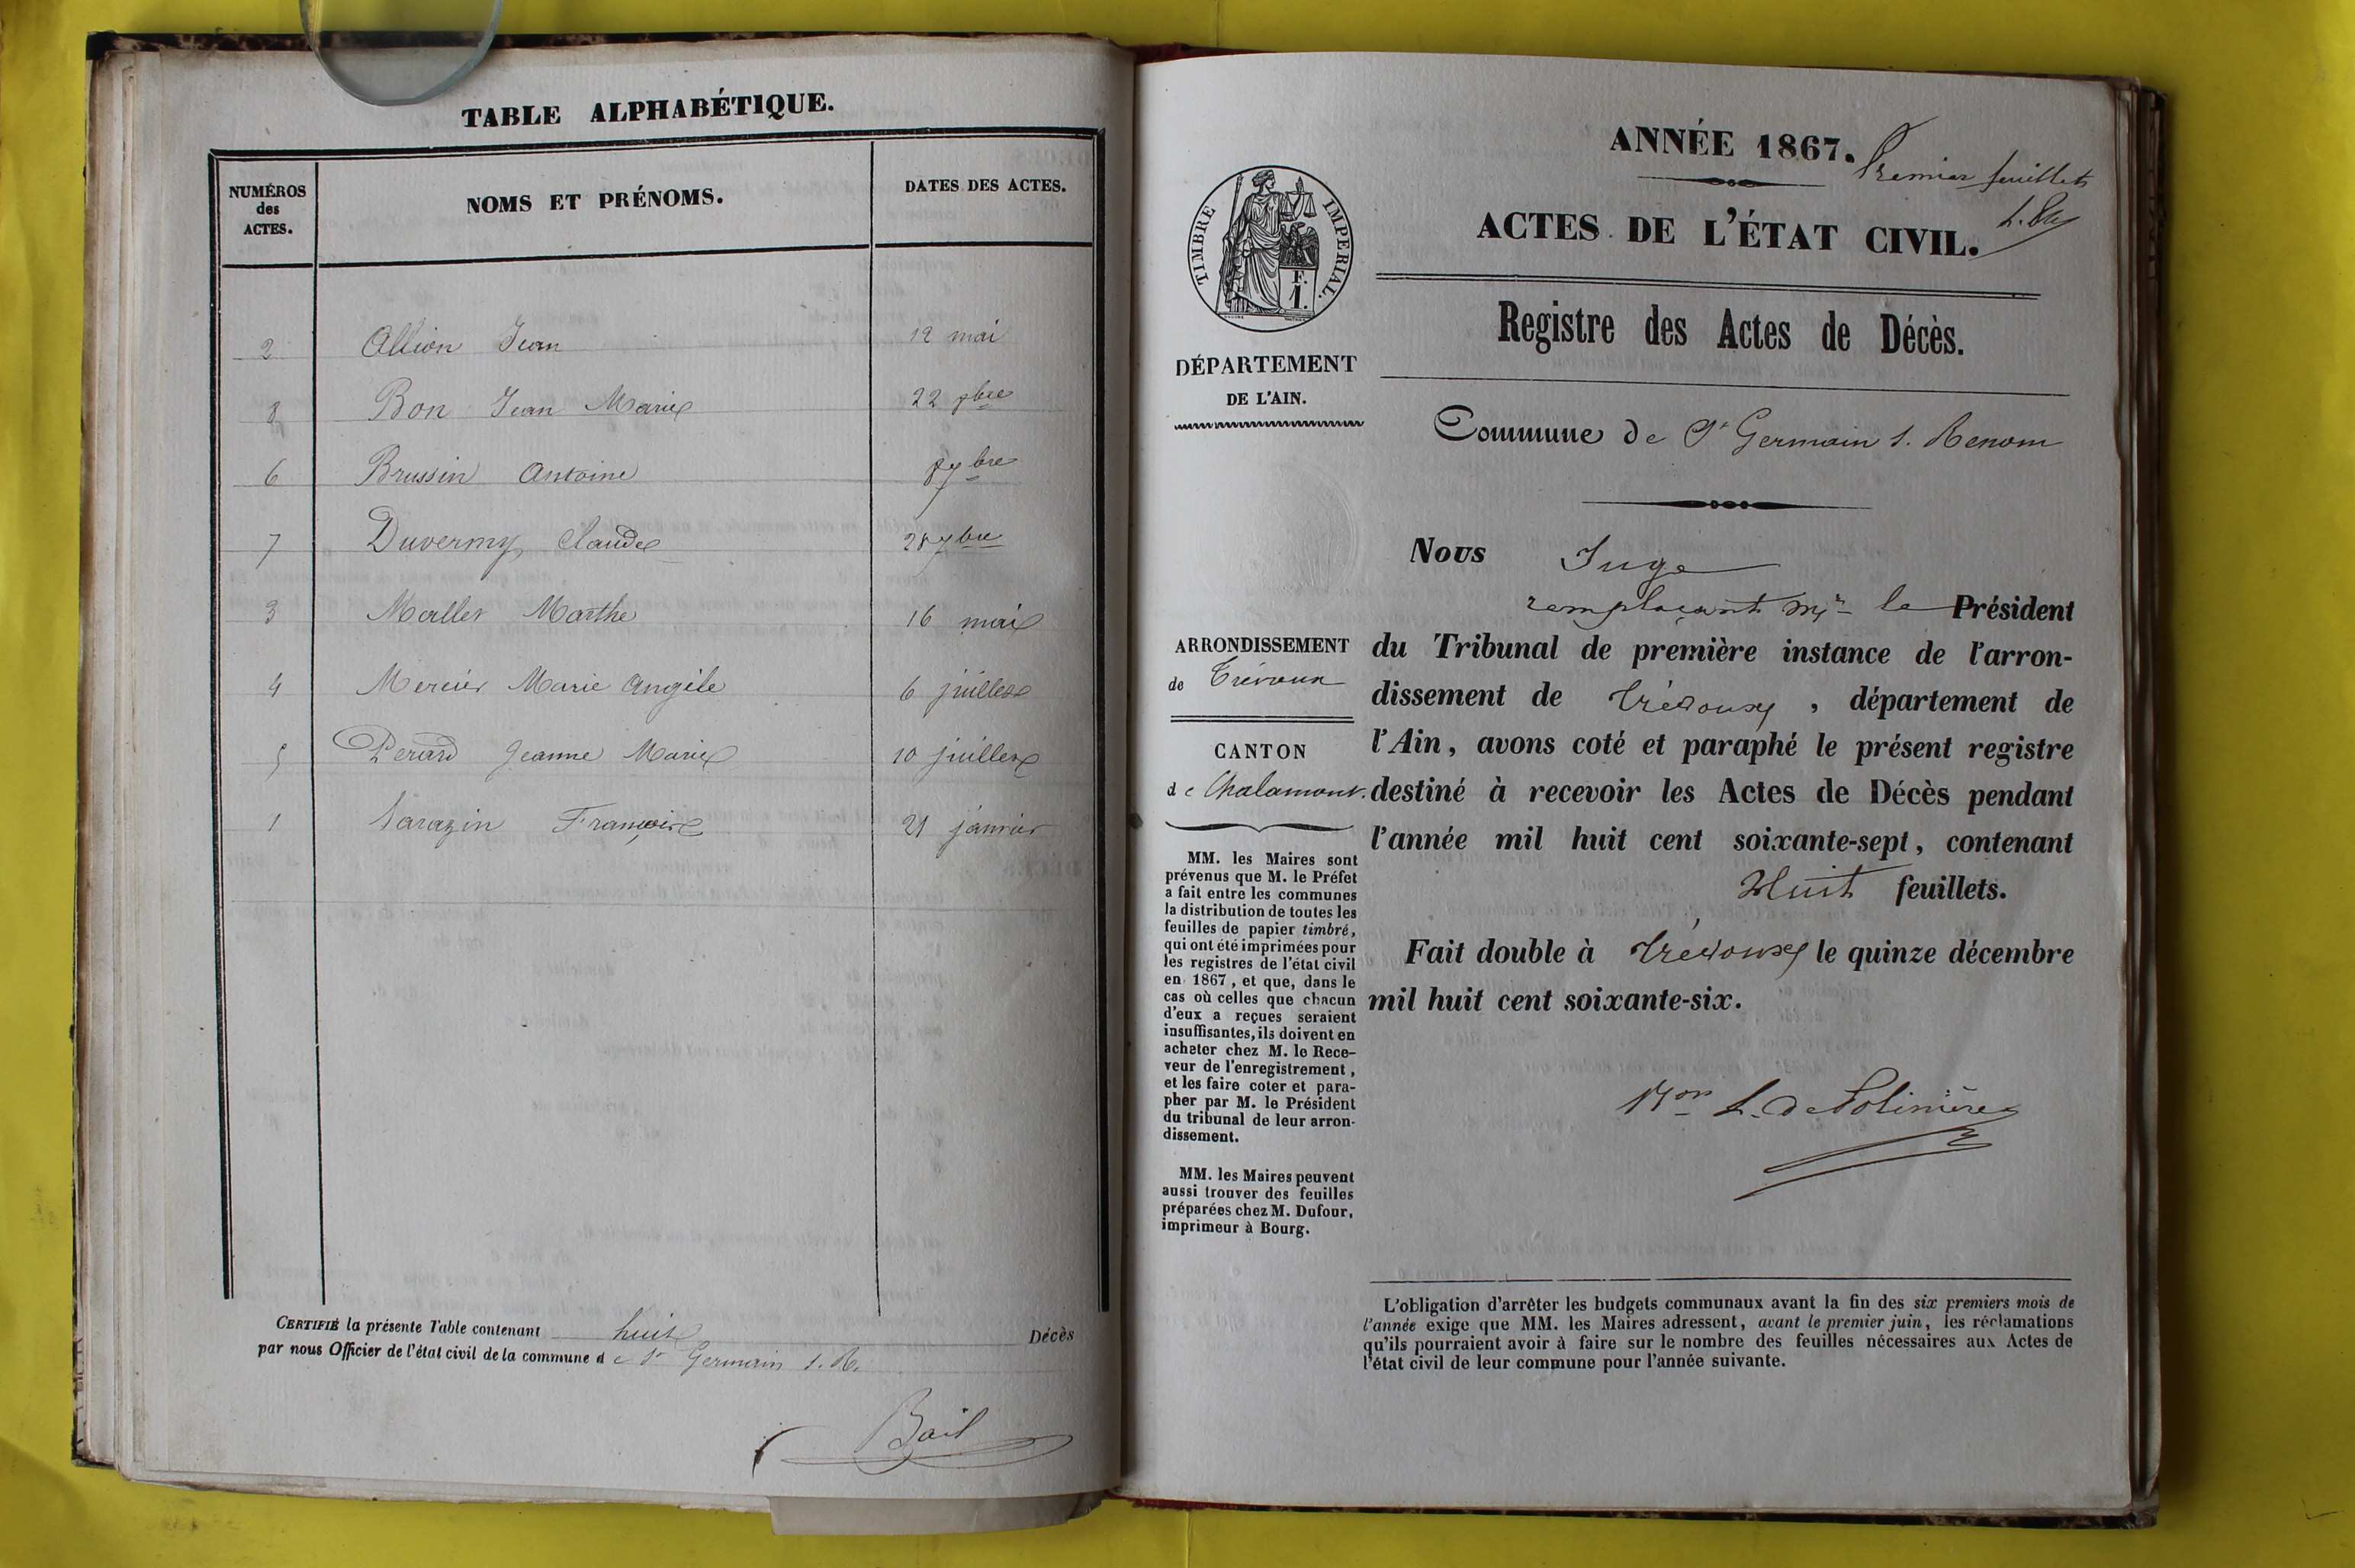 TABLE ALPHABÉTIQUE.
NUMÉROS des ACTES.
NOMS ET PRÉNOMS.
DATES DES ACTES.
2 Allion Jean 12 mai
8 Bon Jean Marie 22
6 Brussin Antoine 8 7bre
7 Duverny Claude 28 7bre
3 Mallet Marthe 16 mai
4 Mercier Marie Angèle 6 juillet
5 Perard Jeanne Marie 10 juillet
1 Sarazin Françoise 21 janvier
CERTIFIÉ la présente Table contenant huit Décès
par nous Officier de l'état civil de la commune de St Germain s. R.
Bail
ANNÉE 1867.
Premier feuillet
ACTES DE L'ÉTAT CIVIL.
Registre des Actes de Décès.
TIMBRE IMPERIAL.
F.
1.
DÉPARTEMENT
DE L'AIN.
Commune de St Germain s. Renom
Nous Juge
remplaçant Mr le Président
ARRONDISSEMENT
de Trévoux
CANTON
de Chalamont.
du Tribunal de première instance de l'arron-
dissement de Trévoux, département de
l'Ain, avons coté et paraphé le présent registre
destiné à recevoir les Actes de Décès pendant
l'année mil huit cent soixante-sept, contenant
Huit feuillets.
Fait double à Trévoux le quinze décembre
mil huit cent soixante-six.
L. de Polinière
MM. les Maires sont
prévenus que M. le Préfet
a fait entre les communes
la distribution de toutes les
feuilles de papier timbré,
qui ont été imprimées pour
les registres de l'état civil
en 1867, et que, dans le
cas où celles que chacun
d'eux a reçues seraient
insuffisantes, ils doivent en
acheter chez M. le Rece-
veur de l'enregistrement,
et les faire coter et para-
pher par M. le Président
du tribunal de leur arron-
dissement.
MM. les Maires peuvent
aussi trouver des feuilles
préparées chez M. Dufour,
imprimeur à Bourg.
L'obligation d'arrêter les budgets communaux avant la fin des six premiers mois de
l'année exige que MM. les Maires adressent, avant le premier juin, les réclamations
qu'ils pourraient avoir à faire sur le nombre des feuilles nécessaires aux Actes de
l'état civil de leur commune pour l'année suivante.